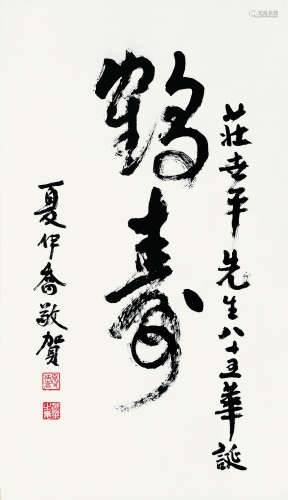 莊世平先生八十五華誕
鶴壽
夏伊喬敬賀